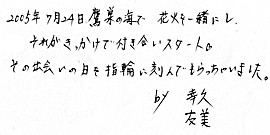 2005年7月24日鷹巣の海で 花火を一緒にし
それがきっかけで付き合いスタート。
その出会いの日を指輪に刻んでもらっちゃいました。
by 幸久
友美